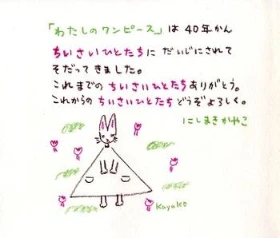 「わたしのワンピース」は40年かん
ちいさいひとたちに だいじにされて
そだって きました。
これまでの ちいさいひとたち ありがとう。
これからの ちいさいひとたち どうぞよろしく。
にしまきかやこ
Kayako